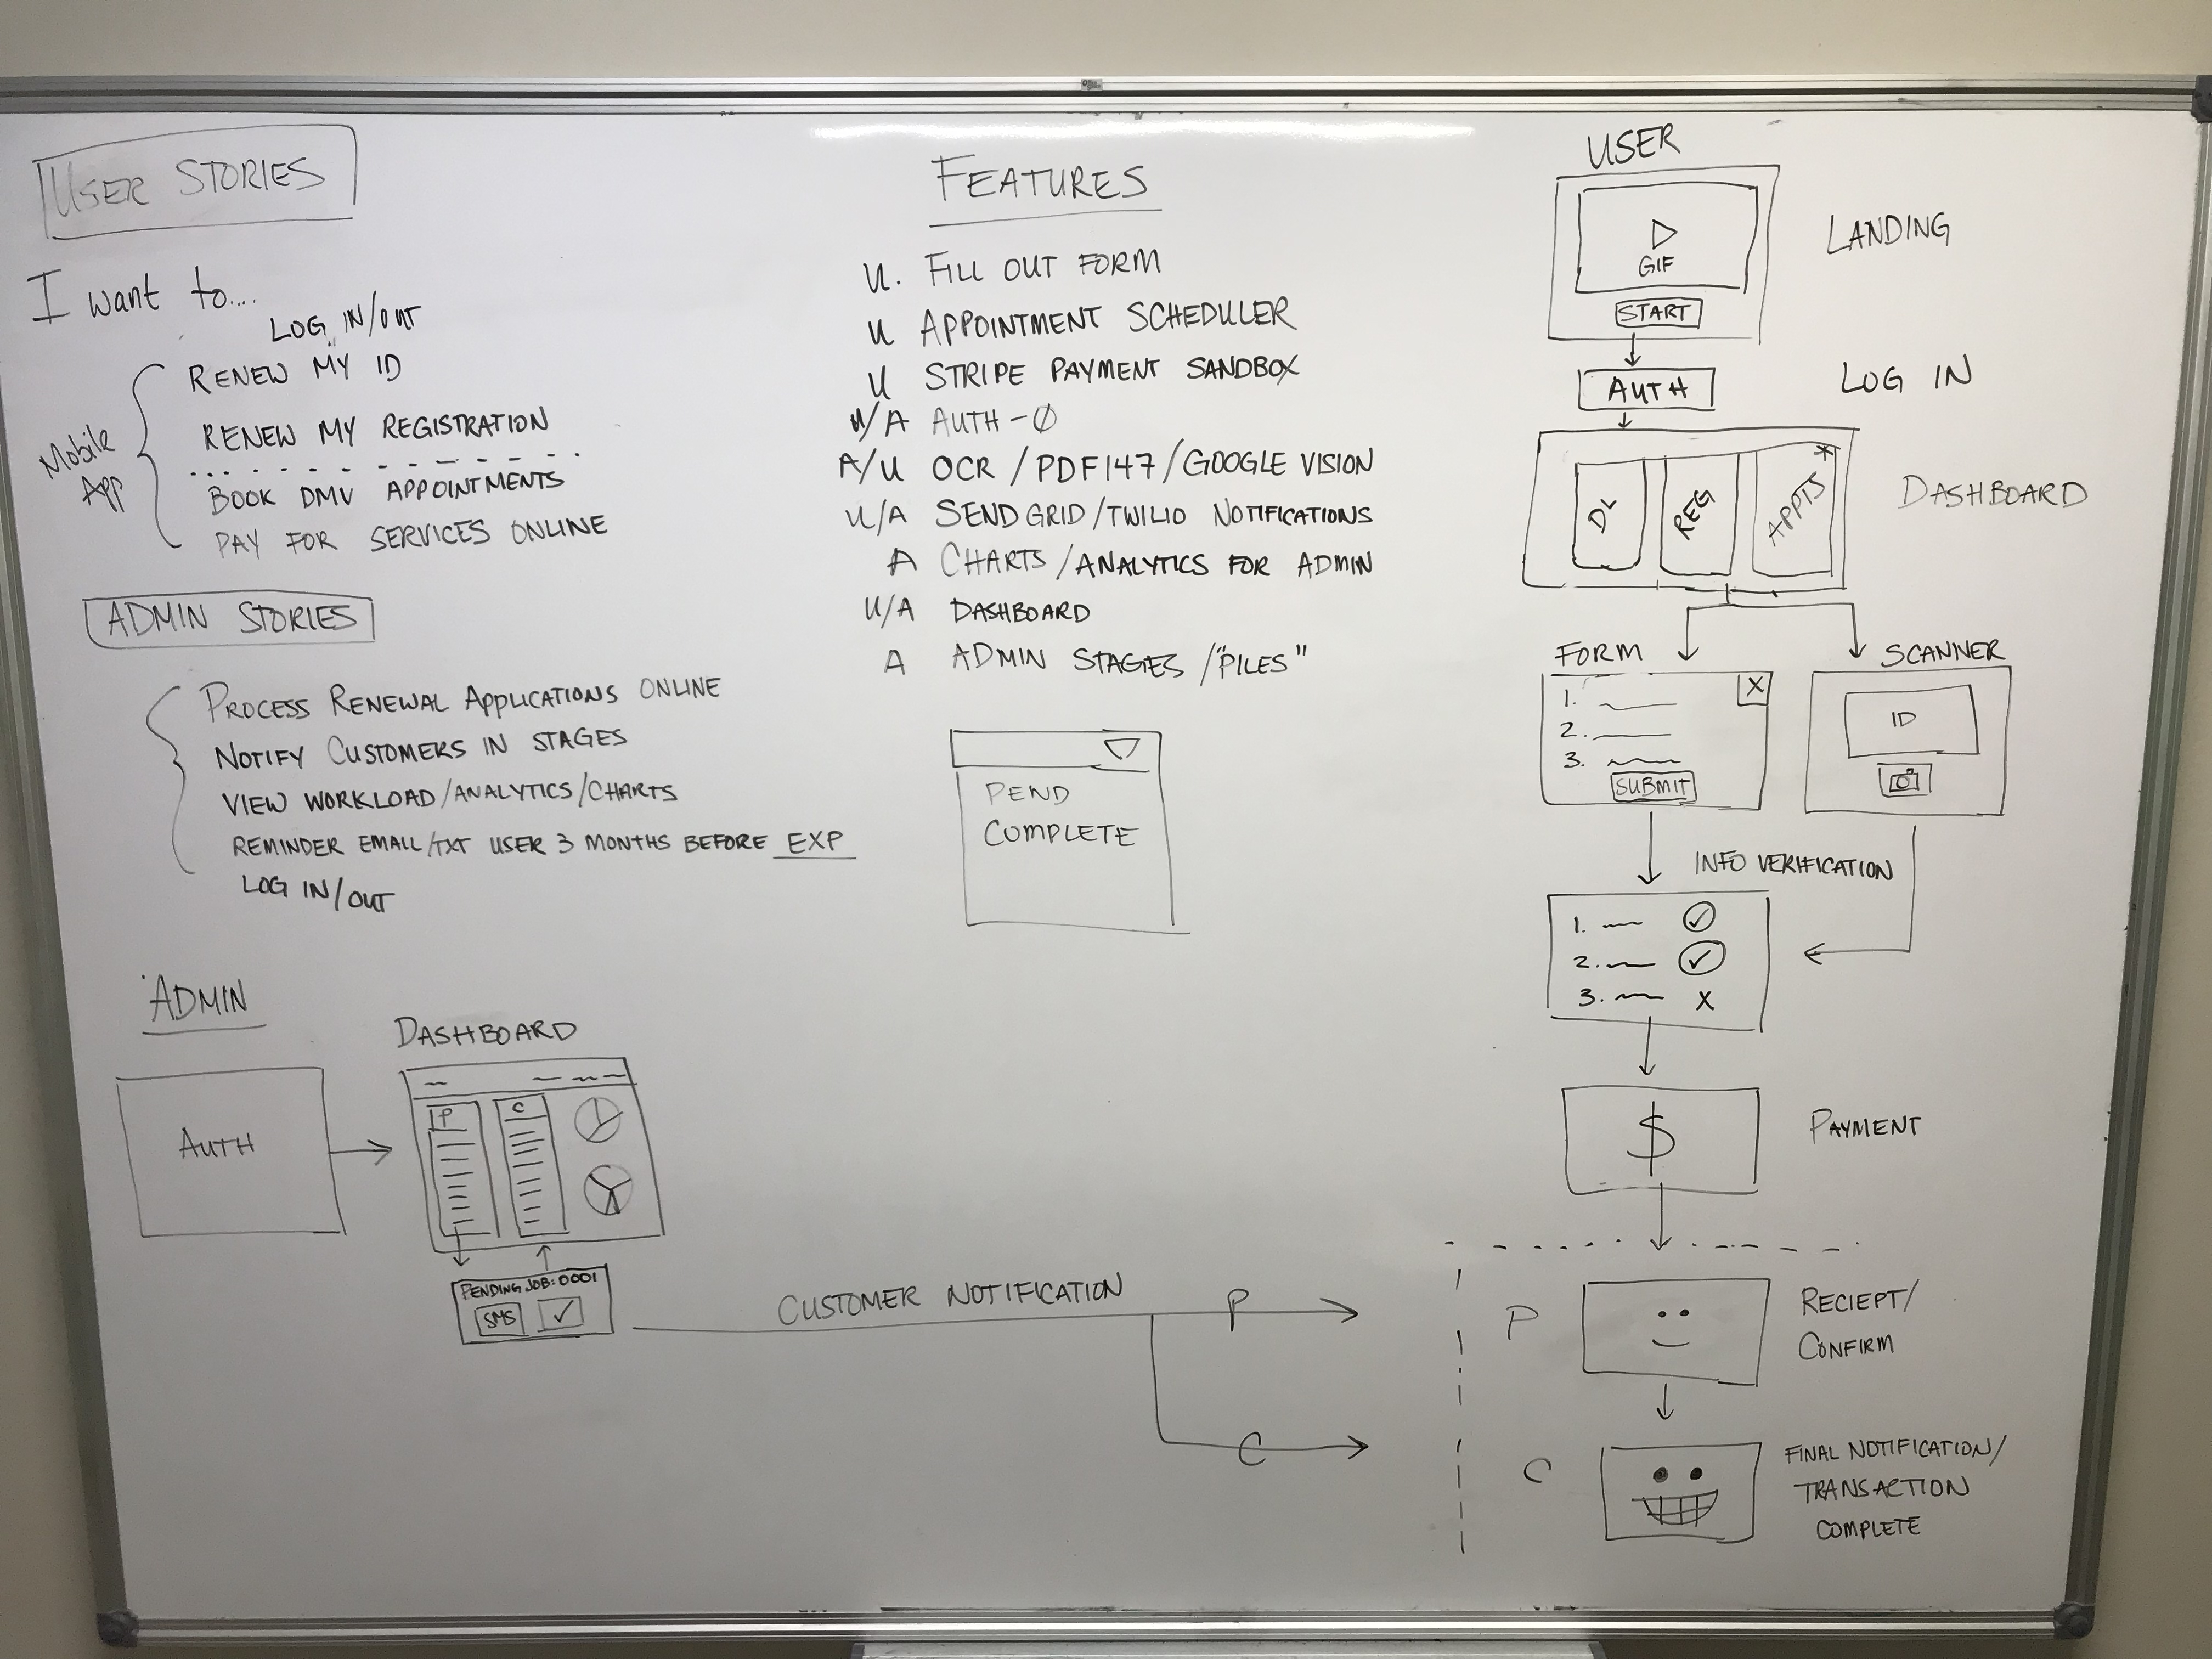 USER STORIES
I want to....
LOG IN/OUT
Mobile App
RENEW MY ID
RENEW MY REGISTRATION
BOOK DMV APPOINTMENTS
PAY FOR SERVICES ONLINE
ADMIN STORIES
PROCESS RENEWAL APPLICATIONS ONLINE
NOTIFY CUSTOMERS IN STAGES
VIEW WORKLOAD/ANALYTICS/CHARTS
REMINDER EMAIL/TXT USER 3 MONTHS BEFORE EXP
LOG IN/OUT
ADMIN
AUTH
DASHBOARD
P
C
PENDING JOB:0001
SMS
CUSTOMER NOTIFICATION
P
C
FEATURES
U. FILL OUT FORM
U APPOINTMENT SCHEDULER
U STRIPE PAYMENT SANDBOX
U/A AUTH-Ø
A/U OCR/PDF147/GOOGLE VISION
U/A SENDGRID/TWILIO NOTIFICATIONS
A CHARTS/ANALYTICS FOR ADMIN
U/A DASHBOARD
A ADMIN STAGES/"PILES"
PEND
COMPLETE
USER
GIF
START
LANDING
AUTH
LOG IN
DL
REG
APPTS
*
DASHBOARD
FORM
X
1.
2.
3.
SUBMIT
SCANNER
ID
INFO VERIFICATION
1. ✓
2. ✓
3. X
$
PAYMENT
P
RECIEPT/
CONFIRM
C
FINAL NOTIFICATION/
TRANSACTION
COMPLETE